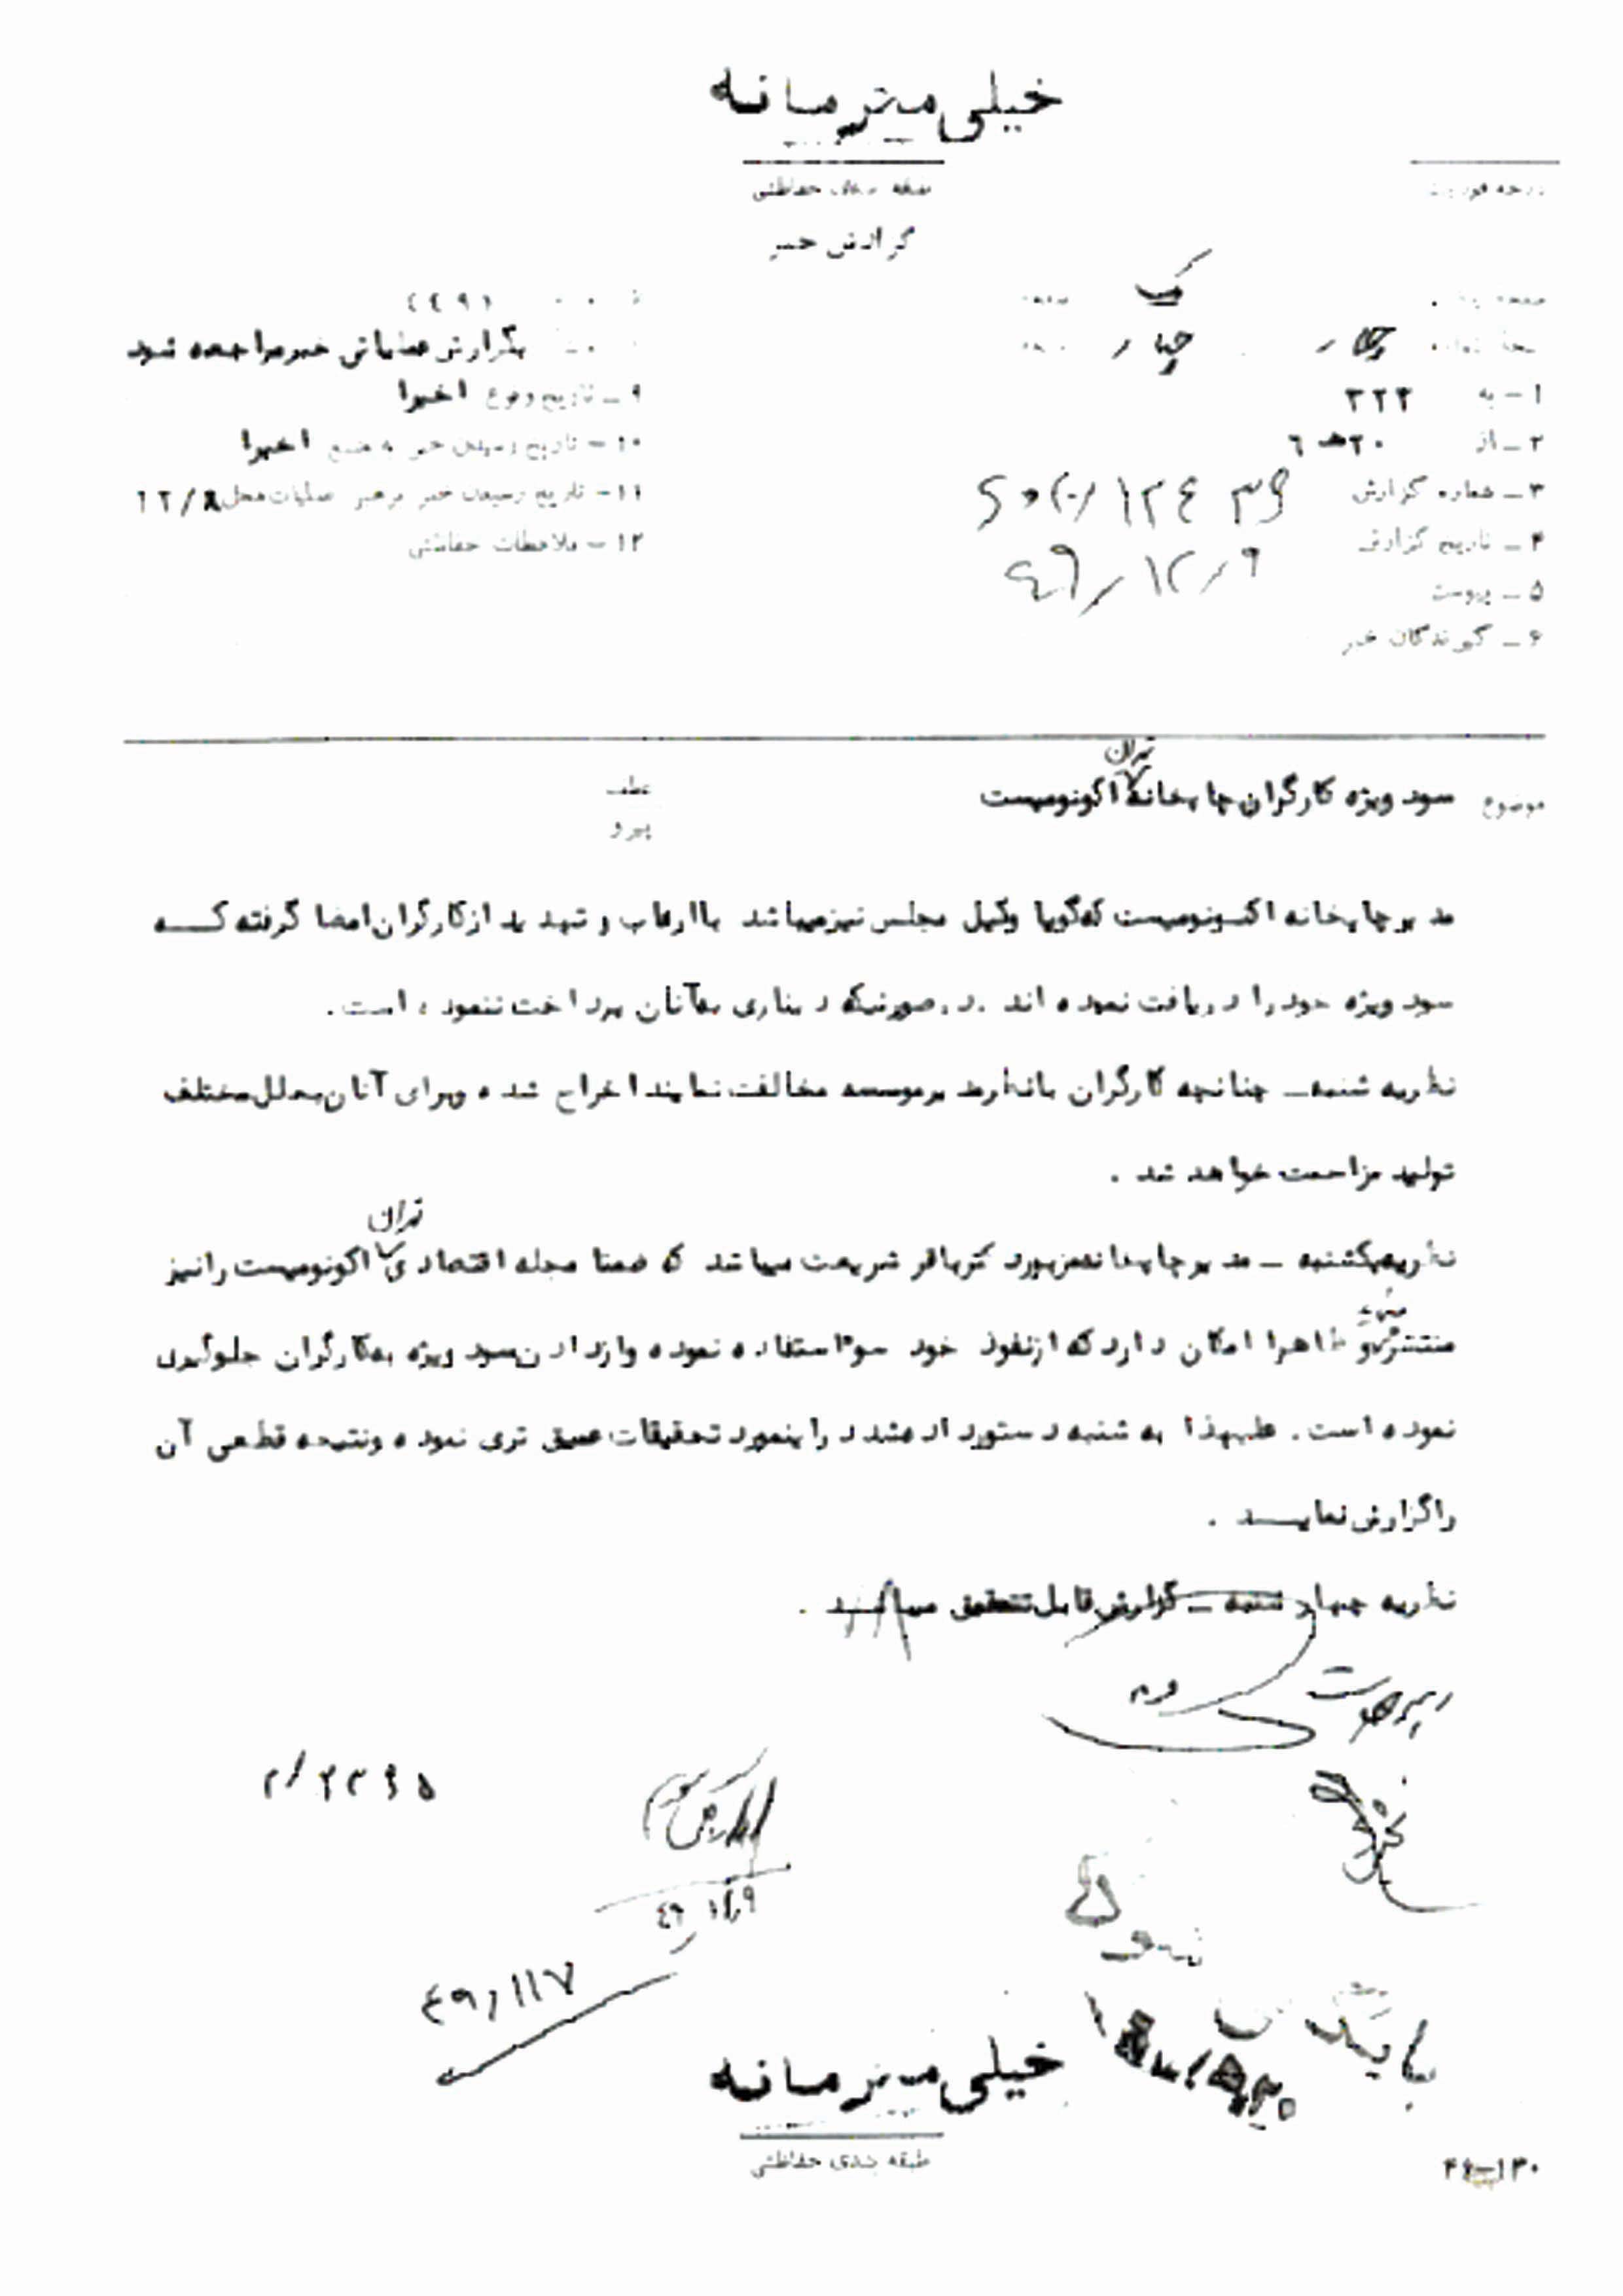 خیلی محرمانه
طبقه بندی حفاظتی
گزارش خبر
یک
چهار
بگزارش عملیاتی خبر مراجعه شود
۱ - به ۳۲۲
۲ - از ۲۰ ه ۶
۳ - شماره گزارش
۴ - تاریخ گزارش ۴۹/۱۲/۹
۵ - پیوست
۶ - گیرندگان خبر
۹ - تاریخ وقوع اخیرا
۱۰ - تاریخ رسیدن خبر به منبع اخیرا
۱۱ - تاریخ رسیدن خبر برهبر عملیات محل ۱۲/۸
۱۲ - ملاحظات حفاظتی
موضوع سود ویژه کارگران چاپخانه تهران اکونومیست
عطف
پیرو
مدیر چاپخانه اکونومیست که گویا وکیل مجلس نیز میباشد با ارعاب و تهدید از کارگران امضا گرفته که
سود ویژه خود را دریافت نموده اند . در صورتیکه دیناری به آنان پرداخت ننموده است .
نظریه شنبه - چنانچه کارگران با نظر مدیر موسسه مخالفت نمایند اخراج شده و برای آنان بعلل مختلف
تولید مزاحمت خواهد شد .
نظریه یکشنبه - مدیر چاپخانه مزبور دکتر باقر شریعت میباشد که ضمنا مجله اقتصادی تهران اکونومیست را نیز
منتشر مینماید و ظاهرا امکان دارد که از نفوذ خود سوء استفاده نموده و از دادن سود ویژه به کارگران جلوگیری
نموده است . علیهذا به شنبه دستور داده شد در اینمورد تحقیقات عمیق تری نموده و نتیجه قطعی آن
را گزارش نماید .
نظریه چهارشنبه - گزارش قابل تحقیق میباشد .
۴۹/۱۲/۹
۴۹/۱۱۷
خیلی محرمانه
طبقه بندی حفاظتی